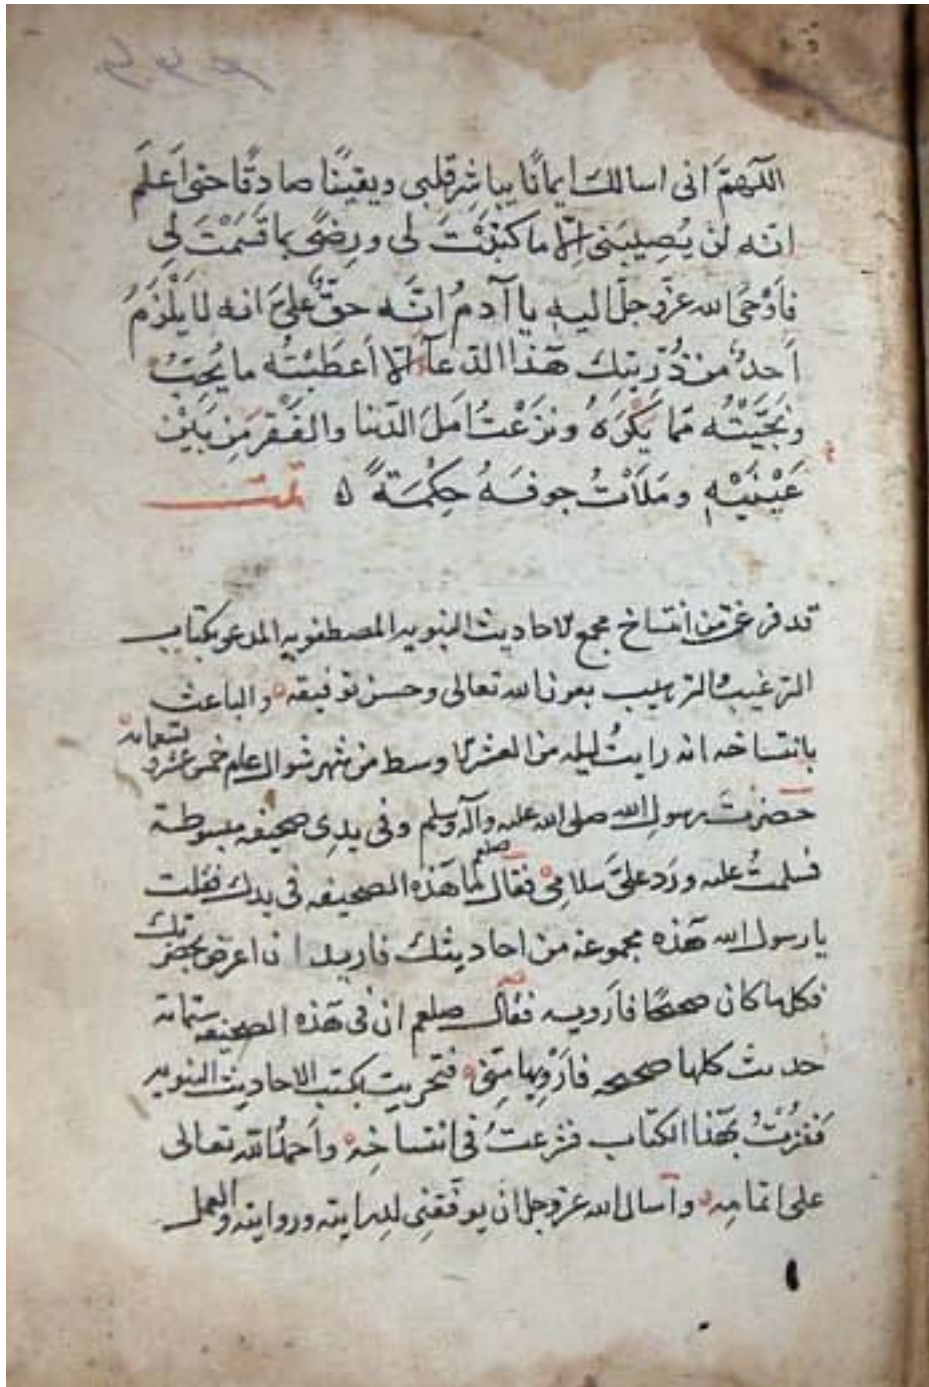 اللّهمَّ اَنى اسالكَ ايمانًا يباشِر قلبى ويقينًا صادقًا حتى اَعلَم
انّه لن يُصِيبَنى اِلّا ما كتبْتَ لى ورِضًى بما قسَمْتَ لِى
فاَوْحىَ الله عزّوجلّ اليهِ يا آدمُ انّه حقٌّ علىَّ انه لا يَلْزَمُ
اَحدٌ من ذُرّيتِك هَذا الدّعآء اِلّا اَعطَيْتُه ما يُحِبُّ
ونَجَّيْتُه مّما يَكْرَهُ ونزَعْتُ اَملَ الدّنيا والفَقْر مِن بَيْن
عَيْنَيْهِ ومَلَأتُ جوفَهُ حِكْمَةً ه تمت
قد فرغت من انتساخ مجمع الاحاديث النبويه المصطفويه المدعو بكتاب
الترغيب والترهيب بعون الله تعالى وحسن توفيقه والباعث
بانتساخه انه رايتُ ليله من العشر الاوسط من شهر شوال عام خمس عشر وتسعمائه
حضرت رسول الله صلى الله عليه وآله وسلم وفى يدِى صحيفه مبسوطة
فسلمتُ عليه ورَد علىَّ سلامِىْ فقال صلعم لما هَذه الصحيفه فى يدك فقلت
يا رسول الله هَذه مجموعة من احاديثك فاريد ان اعرض بحضرتك
فكلها كان صحيحًا فاَرويه فقال صلعم ان فى هَذه الصحيفه ستمائه
حديث كلها صحيحه فاَرْوِيها مِنّى فتحريت بكتب الاحاديث النبويه
فَفُزْتُ بهَذا الكتاب فشرعتُ فى انتساخِه واَحمدُ الله تعالى
على اتمامِه واَسال الله عزوجل ان يوفّقنِى لدرايته وروايته والعمل